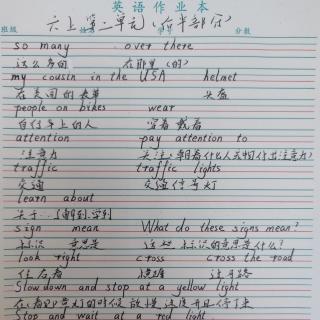 英语作业本
班级 姓名 学号 分数
六上第二单元(后半部分)
so many over there
这么多的 在那里(的)
my cousin in the USA helmet
在美国的表弟 头盔
people on bikes wear
自行车上的人 穿着 戴着
attention pay attention to
注意力 关注;朝着什么人或物付出注意力
traffic traffic lights
交通 交通信号灯
learn about
关于...了解到,学到
sign mean What do these signs mean?
标识 意思是 这些标识的意思是什么?
look right cross cross the road
往右看 横穿 过马路
Slow down and stop at a yellow light
在看见黄灯的时候放慢速度并且停下来
Stop and wait at a red light